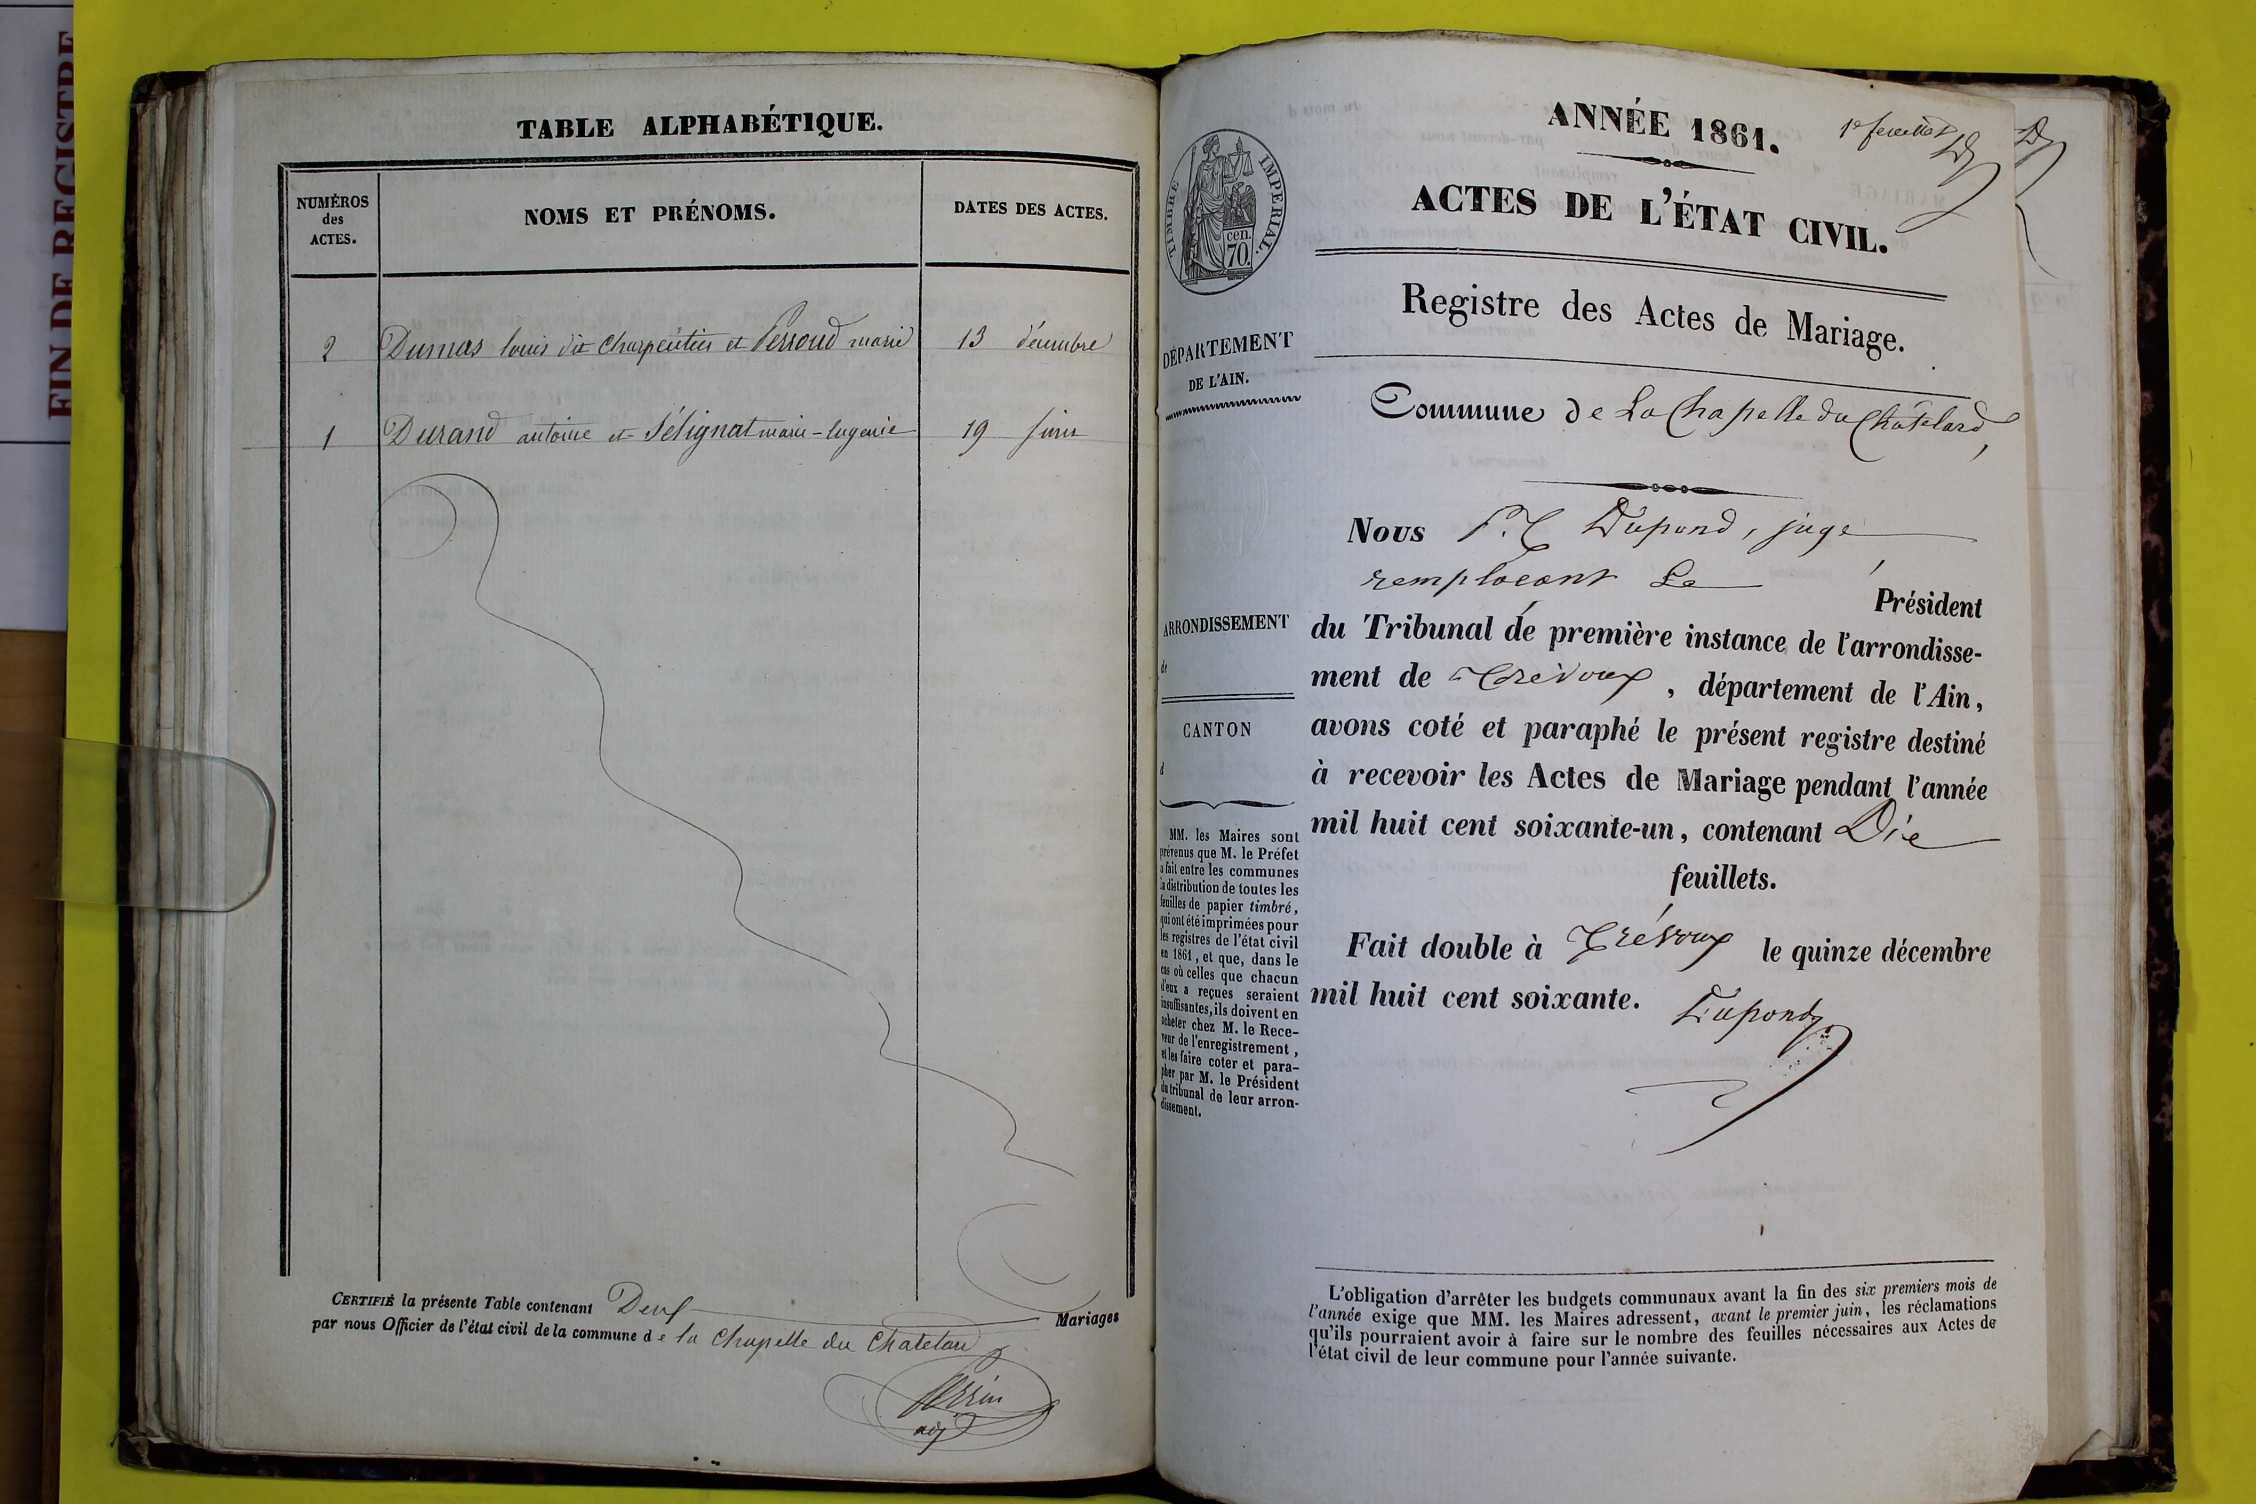 FIN DE REGISTRE
TABLE ALPHABÉTIQUE.
NUMÉROS
des
ACTES.
NOMS ET PRÉNOMS.
DATES DES ACTES.
2 Dumas louis dit charpentier et Perroud marie 13 décembre
1 Durand antoine et Sélignat marie-eugenie 19 juin
CERTIFIÉ la présente Table contenant Deux Mariages
par nous Officier de l'état civil de la commune de la Chapelle du Chatelard
Perrin
adj
ANNÉE 1861.
1e feuillet
TIMBRE IMPÉRIAL.
cen.
70.
ACTES DE L'ÉTAT CIVIL.
Registre des Actes de Mariage.
DÉPARTEMENT
DE L'AIN.
Commune de La Chapelle du Châtelard,
Nous Dupond, juge
remplaçant Le Président
ARRONDISSEMENT
de
du Tribunal de première instance de l'arrondisse-
ment de Trévoux, département de l'Ain,
CANTON
d
avons coté et paraphé le présent registre destiné
à recevoir les Actes de Mariage pendant l'année
mil huit cent soixante-un, contenant Dix
feuillets.
Fait double à Trévoux le quinze décembre
mil huit cent soixante.
Dupond
MM. les Maires sont
prévenus que M. le Préfet
a fait entre les communes
la distribution de toutes les
feuilles de papier timbré,
qui ont été imprimées pour
les registres de l'état civil
en 1861, et que, dans le
cas où celles que chacun
d'eux a reçues seraient
insuffisantes, ils doivent en
acheter chez M. le Rece-
veur de l'enregistrement,
et les faire coter et para-
pher par M. le Président
du tribunal de leur arron-
dissement.
L'obligation d'arrêter les budgets communaux avant la fin des six premiers mois de
l'année exige que MM. les Maires adressent, avant le premier juin, les réclamations
qu'ils pourraient avoir à faire sur le nombre des feuilles nécessaires aux Actes de
l'état civil de leur commune pour l'année suivante.